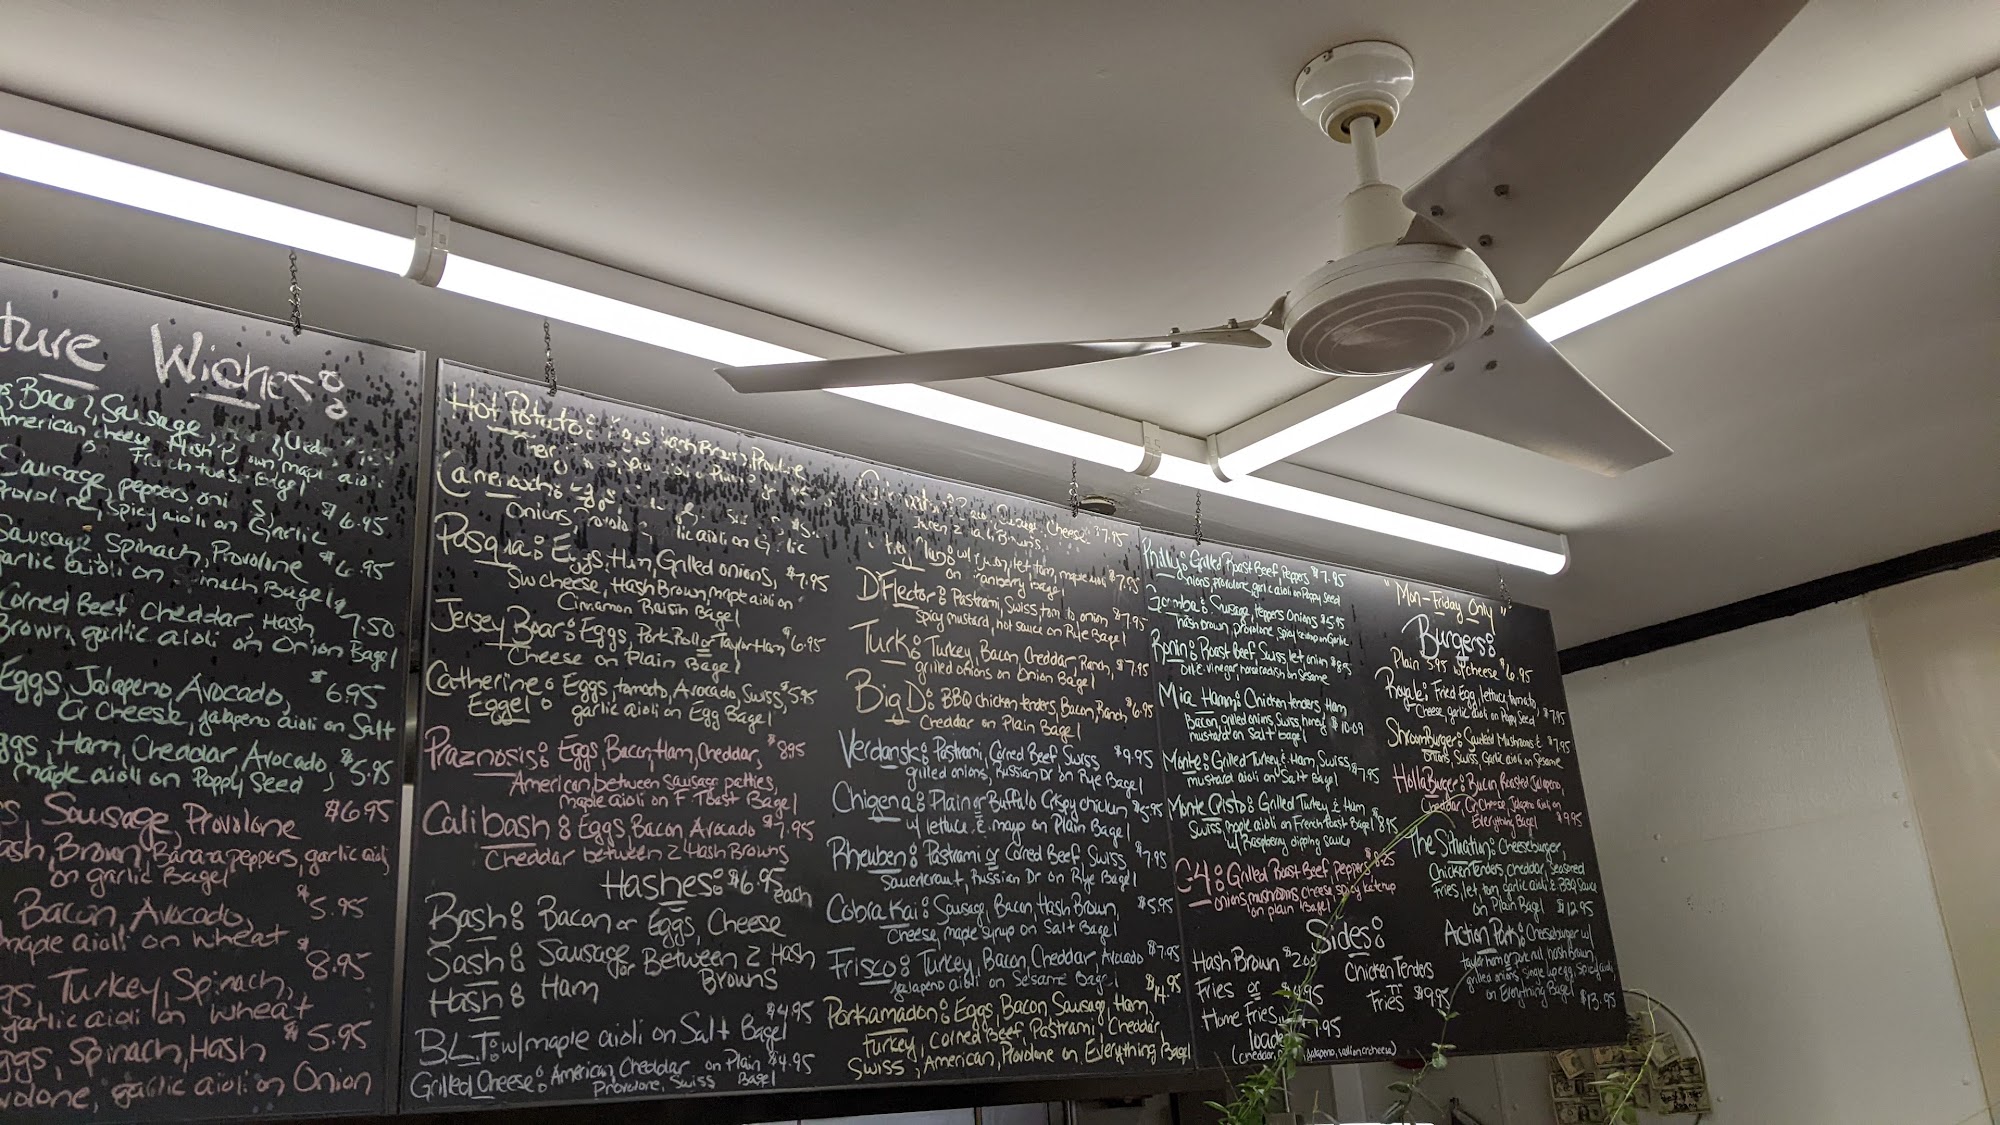 ture Wiches:
Bacon, Sausage,
American cheese, Hash Brown, maple aioli
French toast Bagel
Sausage, peppers, oni $6.95
Provolone, Spicy aioli on Garlic
Sausage Spinach, Provolone $6.95
garlic aioli on Spinach Bagel
Corned Beef Cheddar Hash 7.50
Brown, garlic aioli on Onion Bagel
Eggs, Jalapeno Avocado, $6.95
Cr Cheese, jalapeno aioli on Salt
ggs, Ham, Cheddar, Avocado, $5.95
maple aioli on Poppy Seed
s Sausage, Provolone $6.95
ash, Brown, Banana peppers, garlic aioli
on garlic Bagel
Bacon, Avocado, $5.95
maple aioli on wheat
gs, Turkey, Spinach, $8.95
garlic aioli on wheat
ggs, Spinach, Hash $5.95
volone, garlic aioli on Onion
Hot Potato: Eggs Hash Brown, Provolone
Onions, Provolo garlic aioli on Garlic
Pasqua: Eggs, Ham, Grilled onions, $7.95
Sw cheese, Hash Brown, maple aioli on
Cinnamon Raisin Bagel
Jersey Boar: Eggs, Pork Roll or Taylor Ham $6.95
Cheese on Plain Bagel
Catherine: Eggs, tomato, Avocado, Swiss, $5.95
Eggel garlic aioli on Egg Bagel
Praznosis: Eggs, Bacon, Ham, Cheddar, $8.95
American between sausage patties,
maple aioli on F. Toast Bagel
Calibash: Eggs, Bacon, Avocado $7.95
Cheddar between 2 Hash Browns
Hashes: $6.95 each
Bash: Bacon or Eggs, Cheese
Sash: Sausage or Between 2 Hash
Hash: Ham Browns
B.L.T: w/ maple aioli on Salt Bagel $4.95
Grilled Cheese: American, Cheddar on Plain $4.95
Provolone, Swiss Bagel
Cheese $7.95
on Cranberry bagel $7.95
D'Flector: Pastrami, Swiss, tom to onion $7.95
Spicy mustard, hot sauce on Rye Bagel
Turk: Turkey, Bacon, Cheddar, Ranch, $7.95
grilled onions on Onion Bagel
Big D: BBQ chicken tenders, Bacon, Ranch $6.95
Cheddar on Plain Bagel
Verdansk: Pastrami, Corned Beef, Swiss $9.95
grilled onions, Russian Dr on Rye Bagel
Chigena: Plain or Buffalo Crispy chicken $5.95
w/ lettuce & mayo on Plain Bagel
Rheuben: Pastrami or Corned Beef, Swiss, $7.95
Sauerkraut, Russian Dr on Rye Bagel
Cobra Kai: Sausage, Bacon, Hash Brown, $5.95
Cheese, maple syrup on Salt Bagel
Frisco: Turkey, Bacon, Cheddar, Avocado $7.95
jalapeno aioli on Sesame Bagel
Porkamadon: Eggs, Bacon, Sausage, Ham, $14.95
Turkey, Corned Beef, Pastrami, Cheddar,
Swiss, American, Provolone on Everything Bagel
Philly: Grilled Roast Beef Peppers $7.95
Onions, provolone, garlic aioli on Poppy Seed
Goomba: Sausage, Peppers Onions $5.95
hash brown, provolone, spicy ketchup on Garlic
Ronin: Roast Beef, Swiss, let, onion $8.95
Oil & vinegar, horseradish on Sesame
Mia Hamm: Chicken tenders, Ham,
Bacon, grilled onions, Swiss, honey $10.09
mustard on Salt bagel
Monte: Grilled Turkey & Ham, Swiss, $7.95
mustard aioli on Salt Bagel
Monte Qisto: Grilled Turkey & Ham
Swiss, maple aioli on French Toast Bagel $8.95
w/ Raspberry dipping sauce
C4: Grilled Roast Beef Peppers $8.25
onions, mushrooms, cheese, spicy ketchup
on plain Bagel
Sides:
Hash Brown $2.00
Fries or $4.95
Home Fries
loaded $7.95
Chicken Tenders
Fries $9.95
"Mon-Friday Only"
Burgers:
Plain 5.95 w/ cheese $6.95
Royale: Fried Egg, lettuce, tomato,
Cheese, garlic aioli on Poppy Seed $7.95
ShroomBurger: Sautéed Mushrooms & $7.95
Onions, Swiss, Garlic aioli on Sesame
HollaBurger: Bacon, Roasted Jalapeno,
Cheddar, Cr Cheese, Jalapeno aioli on
Everything Bagel $9.95
The Situation: Cheeseburger,
Chicken Tenders, cheddar, seasoned
fries, let, tom, garlic aioli & BBQ Sauce
on Plain Bagel $12.95
Action Park: Cheeseburger w/
taylor ham or pork roll, hash brown,
grilled onions, single egg, spicy aioli,
on Everything Bagel $13.95